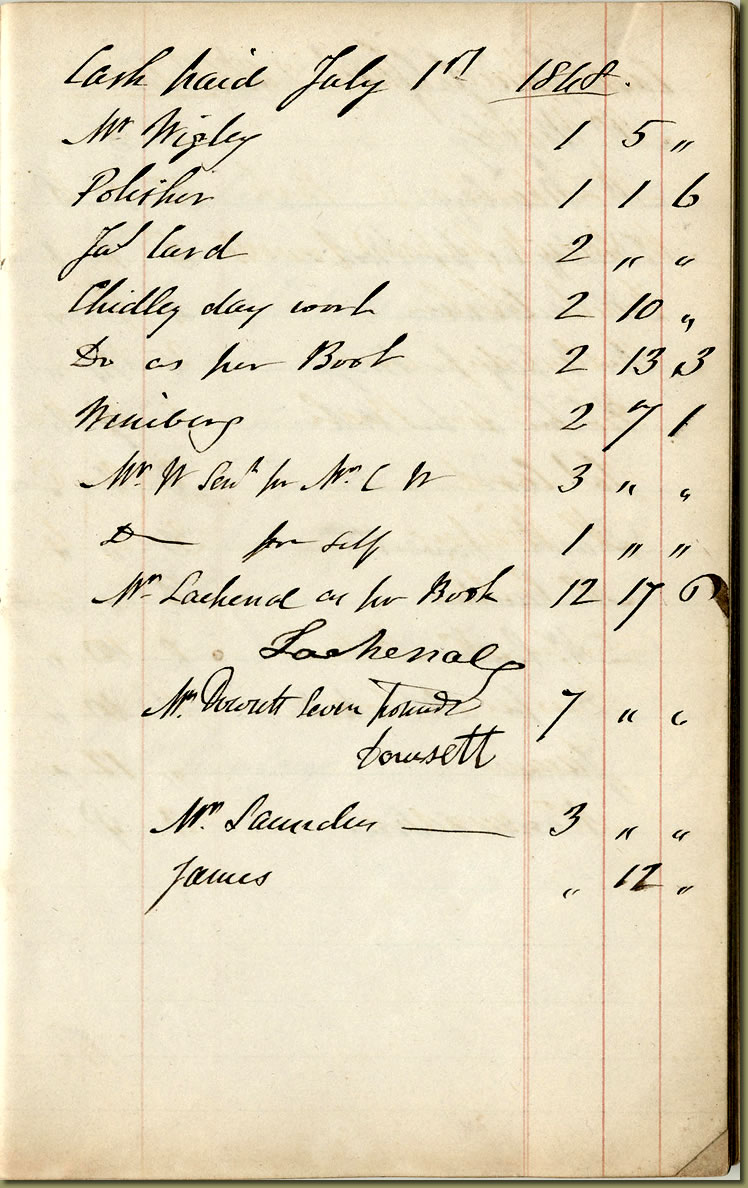 Cash paid July 1st 1848.
Mr Wigley 1 5 "
Polisher 1 1 6
Jas Card 2 " "
Chidley day work 2 10 "
Do as per Book 2 13 3
Weniberg 2 7 1
Mr W Senr for Mr C W 3 " "
Do for self 1 " "
Mr Lachenal as per Book 12 17 6
Lachenal
Mr Dowsett Seven Pounds 7 " "
Dowsett
Mr Saunders — 3 " "
James " 12 "